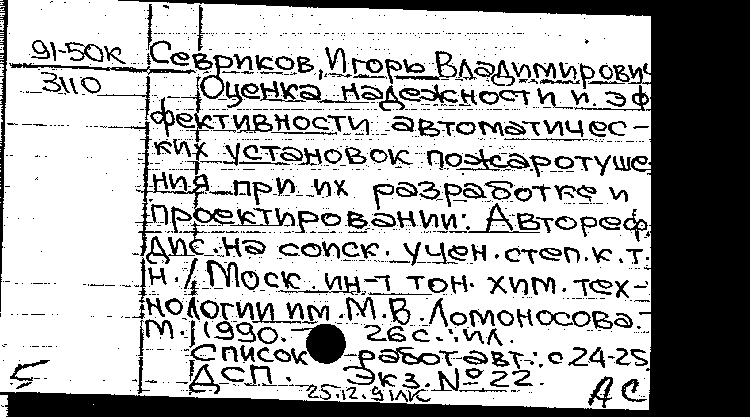 91-50К
3110
Севриков, Игорь Владимирович
Оценка надежности и эф
фективности автоматичес-
ких установок пожаротуше
ния при их разработке и
проектировании: Автореф.
дис. на соиск. учен. степ. к.т.
н. / Моск. ин-т тон. хим. тех-
нологии им. М.В. Ломоносова. -
М. 1990. - 26 с.: ил.
Список работ авт.: с. 24-25
ДСП. Экз. №22.
25.12.91
АС
5